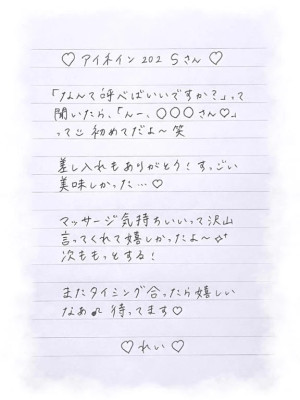 ♡ アイネイン 202 Sさん ♡
「なんて呼べばいいですか?」って
聞いたら、「んー、〇〇〇さん♡」
って 初めてだよ〜 笑
差し入れもありがとう!すっごい
美味しかった…♡
マッサージ気持ちいいって沢山
言ってくれて嬉しかったよ〜
次ももっとする!
またタイミング合ったら嬉しい
なあ♪ 待ってます♡
♡ れい ♡